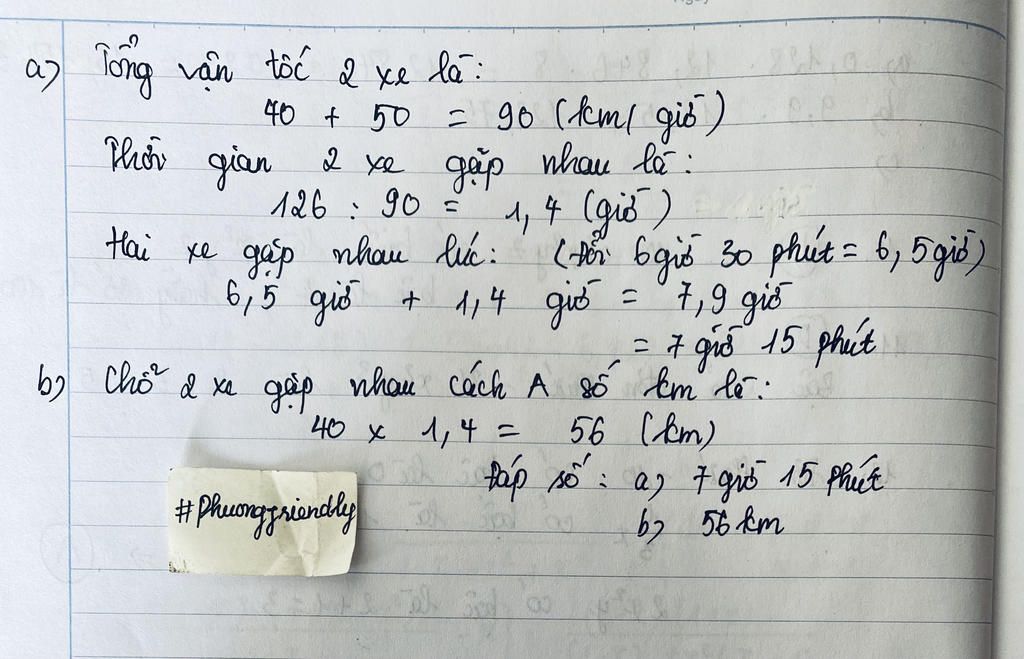 a) Tổng vận tốc 2 xe là:
40 + 50 = 90 (km/giờ)
Thời gian 2 xe gặp nhau là:
126 : 90 = 1,4 (giờ)
Hai xe gặp nhau lúc: (Đổi 6 giờ 30 phút = 6,5 giờ)
6,5 giờ + 1,4 giờ = 7,9 giờ
= 7 giờ 15 phút
b) Chỗ 2 xe gặp nhau cách A số km là:
40 x 1,4 = 56 (km)
Đáp số: a) 7 giờ 15 phút
b) 56 km
#Phuongfriendly